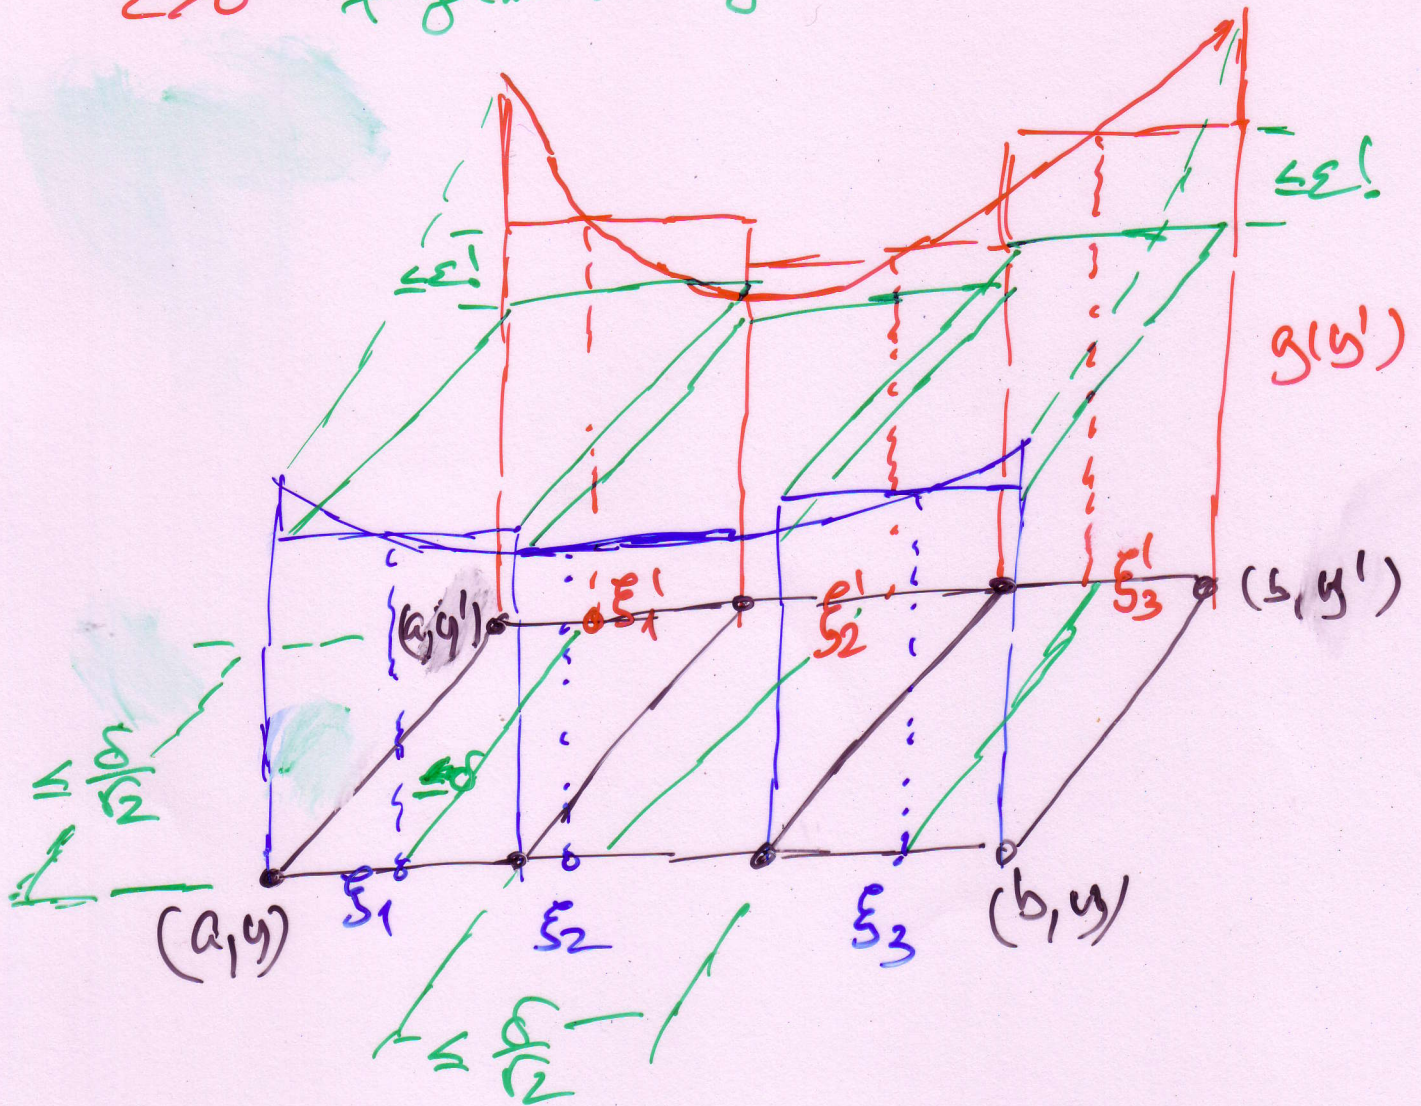 ≤ε!
≤ε!
g(y')
(a,y')
ξ'1
ξ'2
ξ'3
(b,y')
≤ δ/√2
≤δ
(a,y)
ξ1
ξ2
ξ3
(b,y)
≤ δ/√2